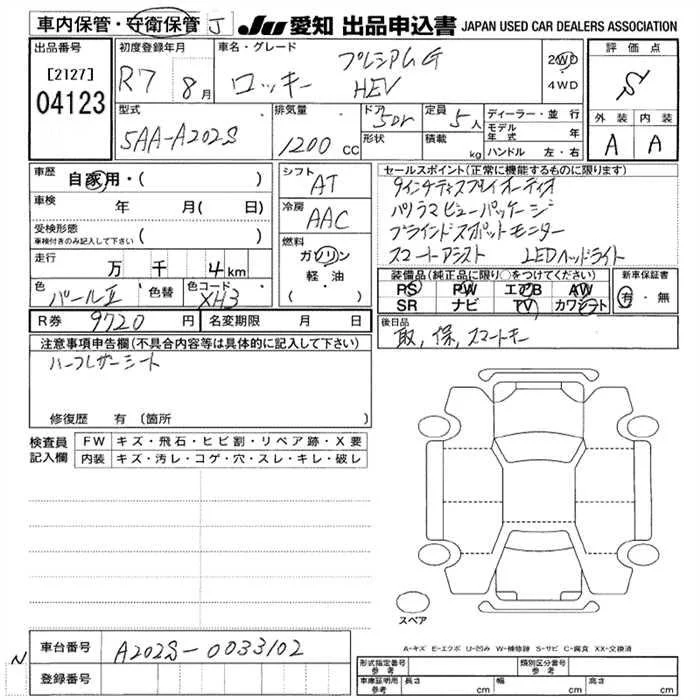 車内保管・守衛保管 J JU 愛知 出品申込書 JAPAN USED CAR DEALERS ASSOCIATION
出品番号 初度登録年月 車名・グレード 評価点
[2127] R7 8月 ロッキー プレミアムG HEV 2WD 4WD S
04123
型式 排気量 ドア 定員 ディーラー・並行
5AA-A202S 1200 cc 5Dr 5人 モデル年式 年
形状 積載 kg ハンドル 左・右
外装 内装
A A
車歴 自家用・( ) シフト AT
車検 年 月( 日) 冷房 AAC
受検形態 車検付きのみ記入して下さい ( ) 燃料 ガソリン 軽・油 (・ )
走行 万 千 4km
色 パールⅡ 色替 色コード XH3
R券 9720円 名変期限 月 日
セールスポイント(正常に機能するものに限ります)
9インチディスプレイオーディオ
パノラマビューパッケージ
ブラインドスポットモニター
スマートアシスト LEDヘッドライト
装備品(純正品に限り○をつけてください) 新車保証書
RS PW エアB AW 有・無
SR ナビ TV カワシート
後日品
取, 保, スマートキー
注意事項申告欄(不具合内容等は具体的に記入して下さい)
ハーフレザーシート
修復歴 有(箇所 )
検査員記入欄 FW キズ・飛石・ヒビ割・リペア跡・X要
内装 キズ・汚レ・コゲ・穴・スレ・キレ・破レ
スペア
A-キズ E-エクボ U-凹み W-補修跡 S-サビ C-腐食 XX-交換済
N 車台番号 A202S-0033102
登録番号
形式指定番号 参考 類別区分番号 参考
車庫証明用 参考 長さ cm 幅 cm 高さ cm